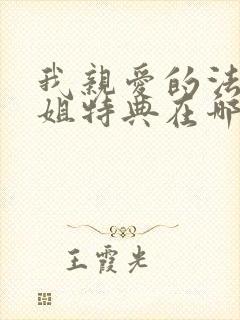 我親愛的法
姐特典在哪
王霞光